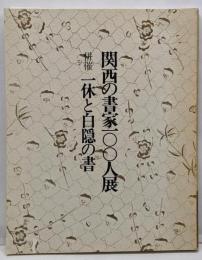 関西の書家一〇〇人展
併催
一休と白隠の書